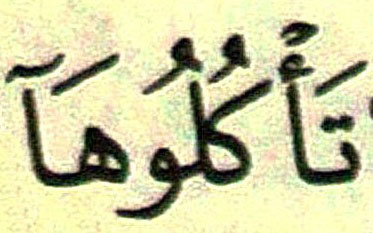 تَأْكُلُوهَآ